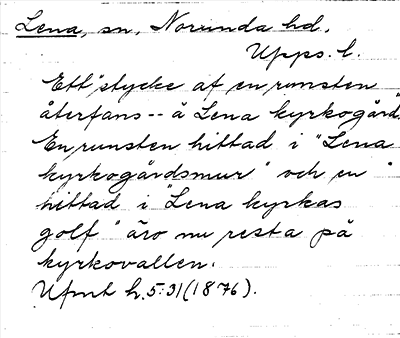 Lena, sn, Norunda hd.
Upps. l.
Ett "stycke af en runsten
återfans -- å Lena kyrkogård."
En runsten hittad i "Lena
kyrkogårdsmur" och en "
hittad i "Lena kyrkas
golf" äro nu resta på
kyrkovallen.
Ufmt h. 5:31 (1876).